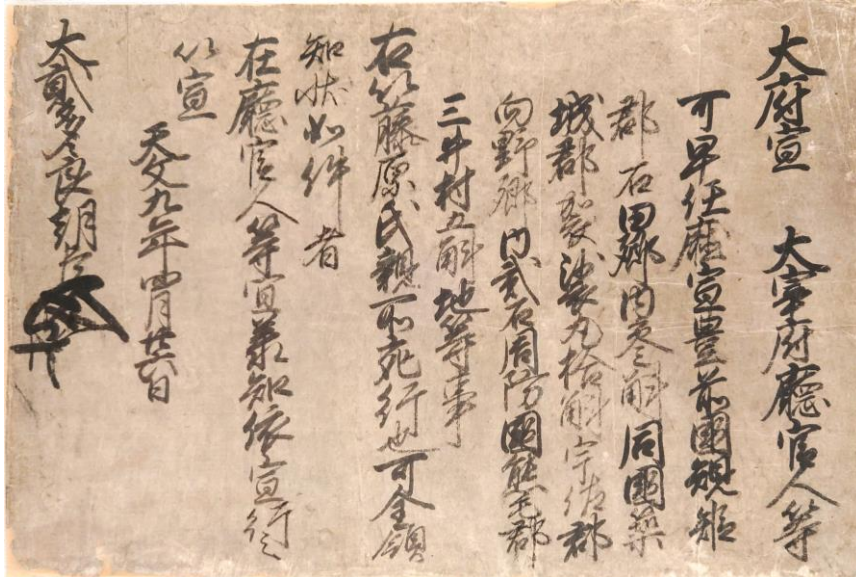 大府宣　大宰府廳官人等
可早任廳宣豊前國規矩
郡石田郷内参斛同國築
城郡袈裟丸拾斛宇佐郡
向野郷内貳石周防國熊毛郡
三井村五斛地等事
右以藤原氏親所宛行也可全領
知状如件者
在廳官人等宜承知依宣行之
以宣
天文九年四月廿六日
大貳多々良朝臣